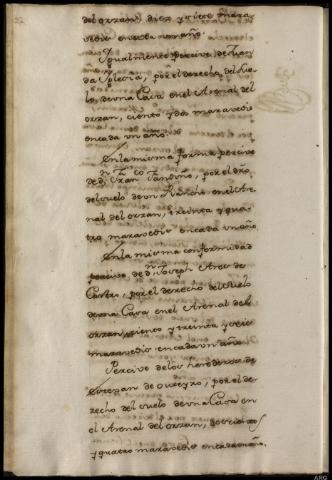 del orzan, diez y siete mara-
vedis en cada un año.
Igualmente percive de
da Iglesia, por el derecho del sue-
lo, de una Casa en el Arenal del
orzan, ciento y dos maravedis
en cada un año.
En la misma forma percive
de dn. Franco. Tandino, por el dro.
del suelo de un Rancho en el Are-
nal del orzan, treinta y qua-
tro maravedis en cada un año.
En la misma conformidad
percive de dn. Joseph Ares de
Castro, por el derecho del suelo
de una Casa en el Arenal del
orzan, ciento y treinta y seis
maravedis en cada un año.
Percive de los herederos de
Estevan de oureyro, por el de-
recho del suelo de una Casa en
el Arenal del orzan,
y quatro maravedis en cada un año.
ARG